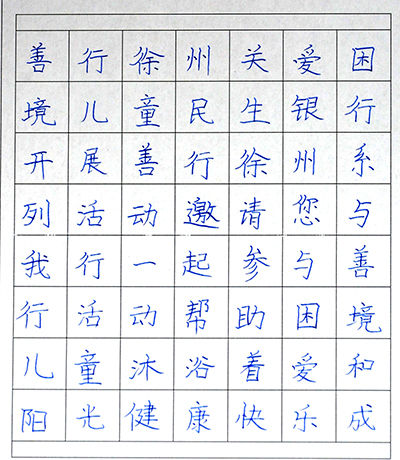 善行徐州关爱困
境儿童民生银行
开展善行徐州系
列活动邀请您与
我行一起参与善
行活动帮助困境
儿童沐浴着爱和
阳光健康快乐成